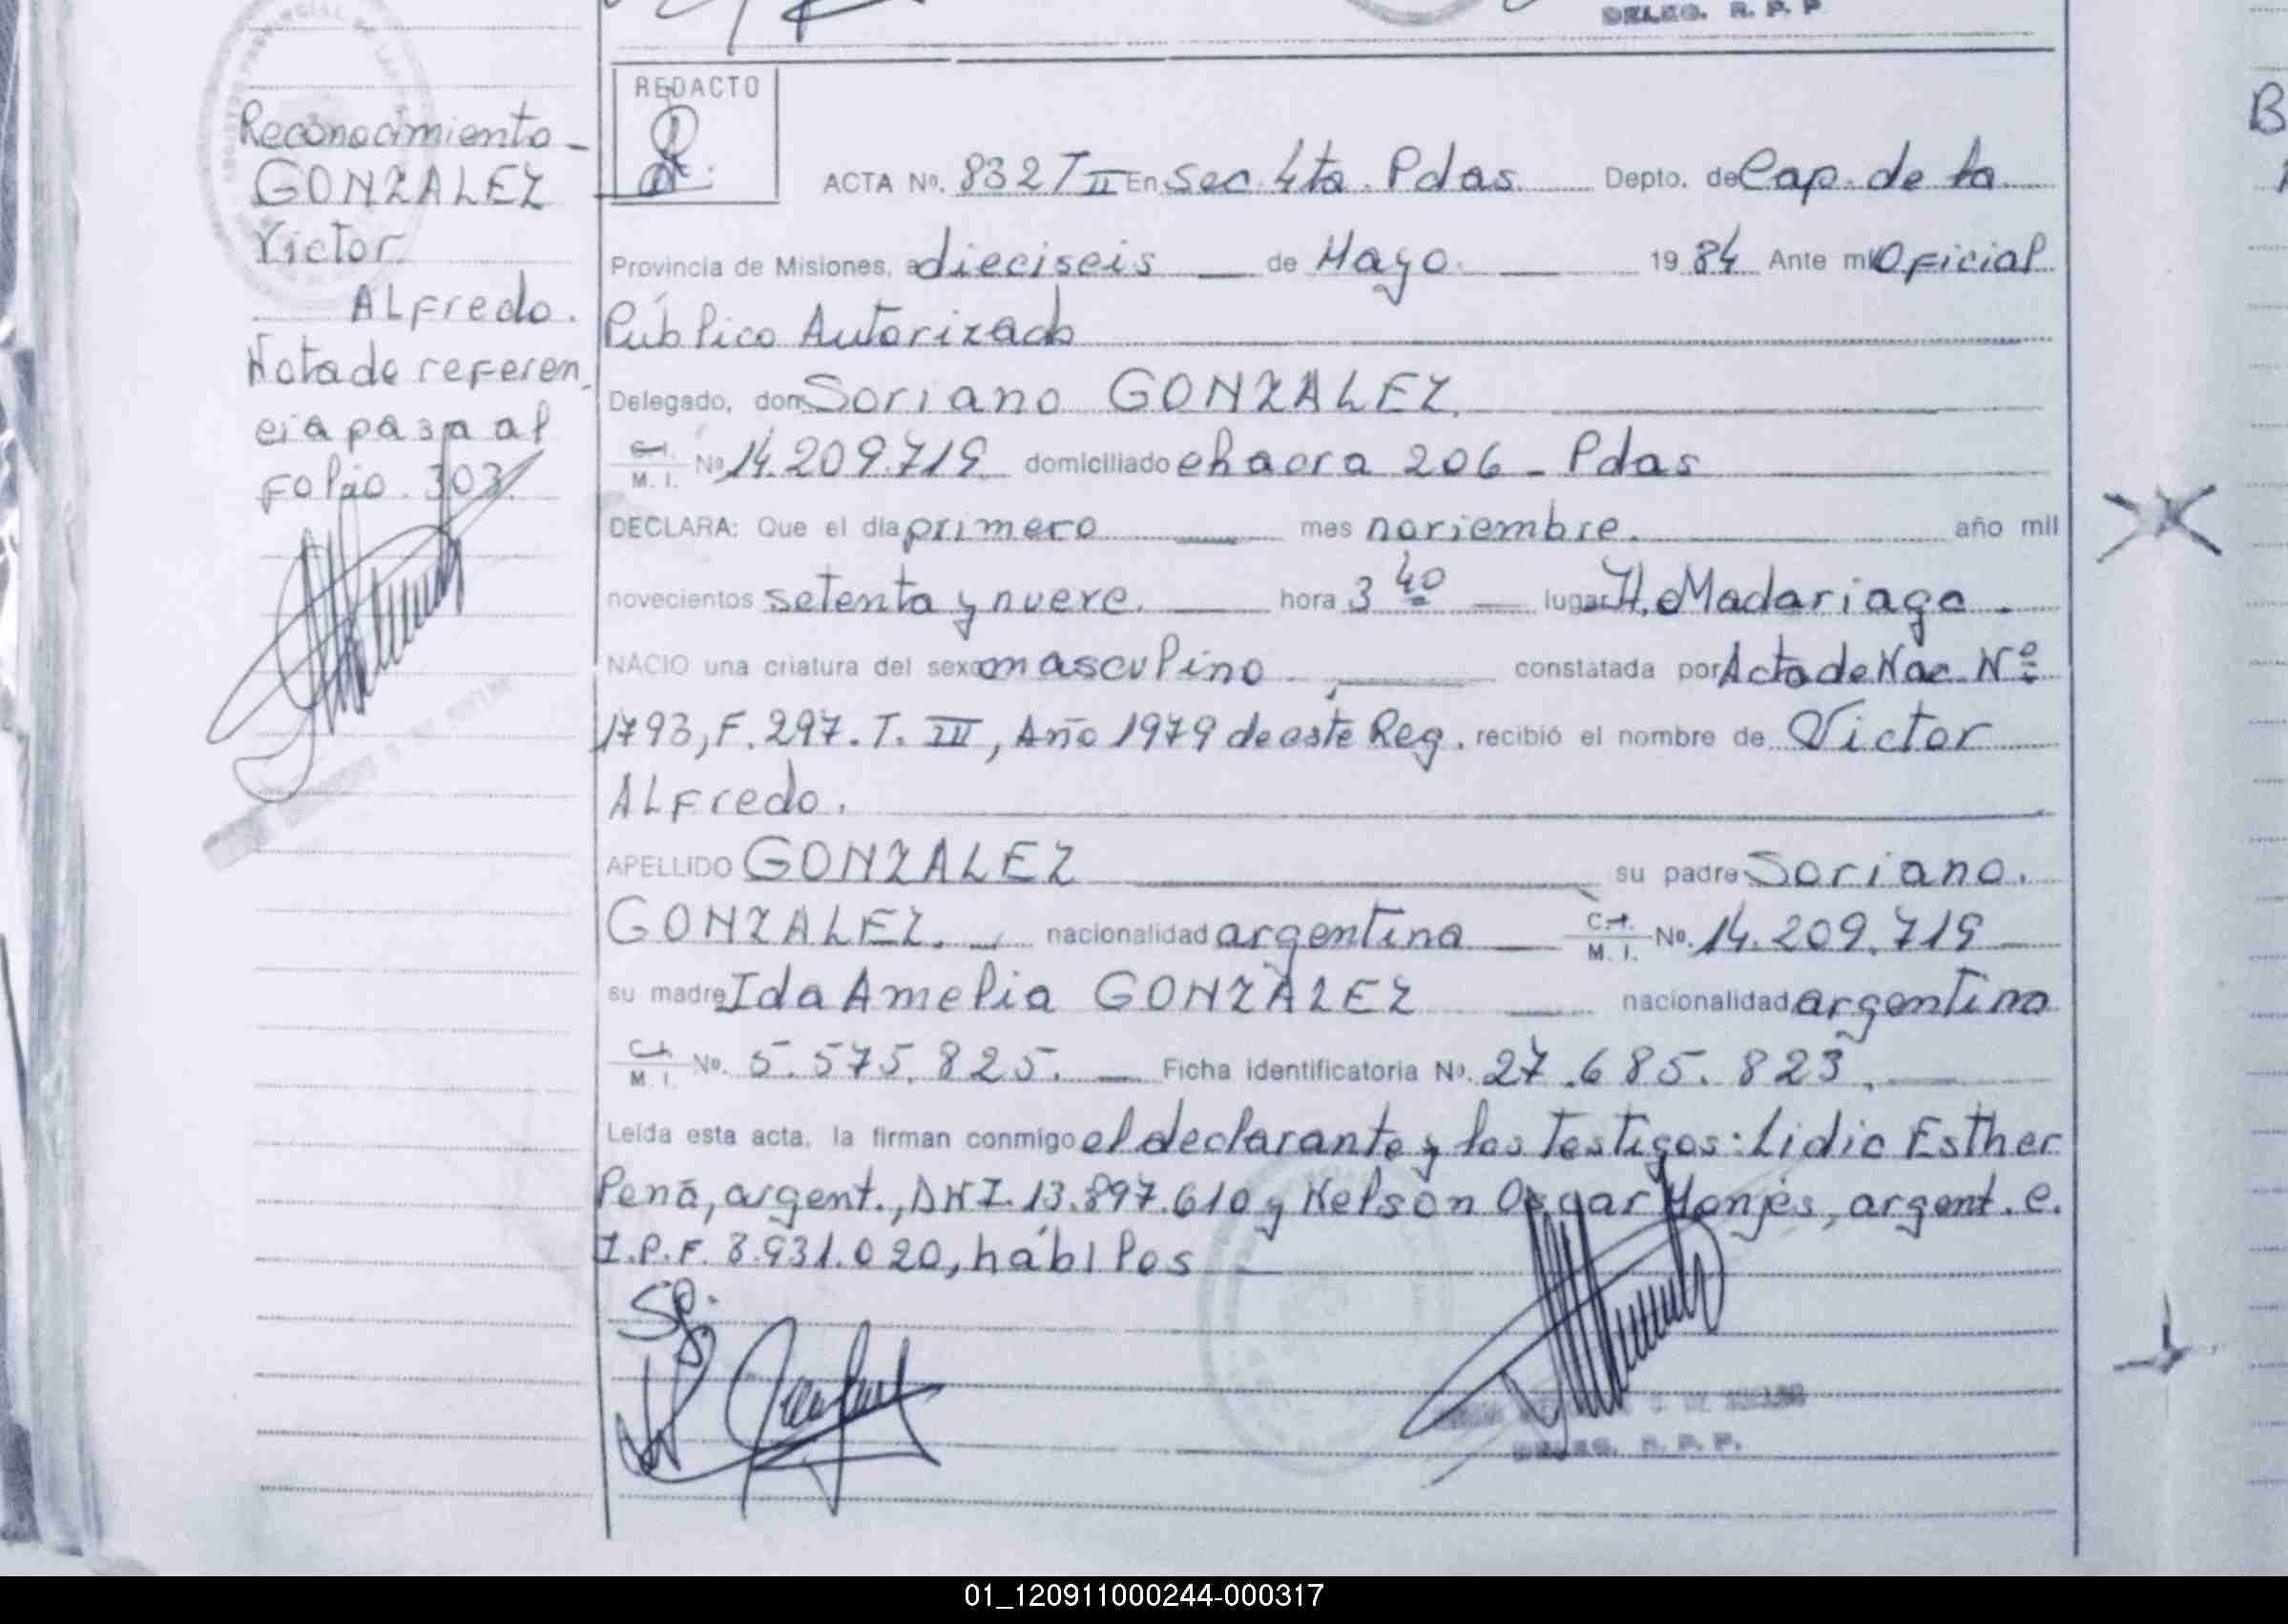 DELEG. R. P. P
Reconocimiento -
GONZALEZ
Victor
ALFredo.
Nota de referen
cia pasa al
Folio. 303.
REDACTO
ACTA Nº. 832 T II En Sec. 4ta. Pdas Depto. de Cap. de la
Provincia de Misiones, a dieciseis de Mayo. 19 84 Ante mí Oficial
Público Autorizado
Delegado, don Soriano GONZALEZ.
C.I. M. I. Nº 14.209.719 domiciliado chacra 206 - Pdas
DECLARA: Que el día primero mes noviembre. año mil
novecientos setenta y nueve. hora 3 40 lugar H. Madariaga.
NACIO una criatura del sexo masculino constatada por Acta de Nac. Nº
1793, F. 297. T. III, Año 1979 de este Reg. recibió el nombre de Victor
ALFredo.
APELLIDO GONZALEZ su padre Soriano.
GONZALEZ. nacionalidad argentina C.I. M. I. Nº. 14.209.719
su madre Ida Amelia GONZALEZ nacionalidad argentina
C.I. M. I. Nº. 5.575.825. Ficha identificatoria Nº. 27.685.823.
Leída esta acta, la firman conmigo el declarante y los Testigos: Lidia Esther
Pena, argent., DNI. 13.897.610 y Nelson Oscar Monjes, argent. c.
I.P.F. 3.931.020, hábiles
DELEG. R. P. P.
01_120911000244-000317